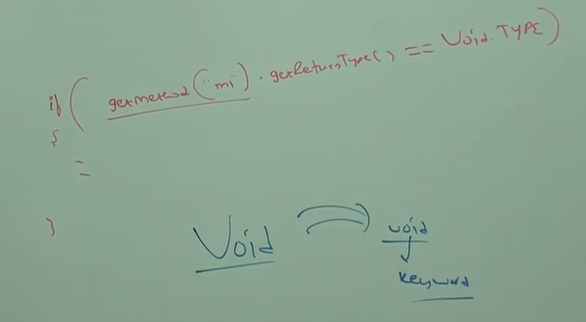 if ( getMethod("m1").getReturnType() == Void.TYPE)
{
=
}
Void ⇒ void
↓
keyword